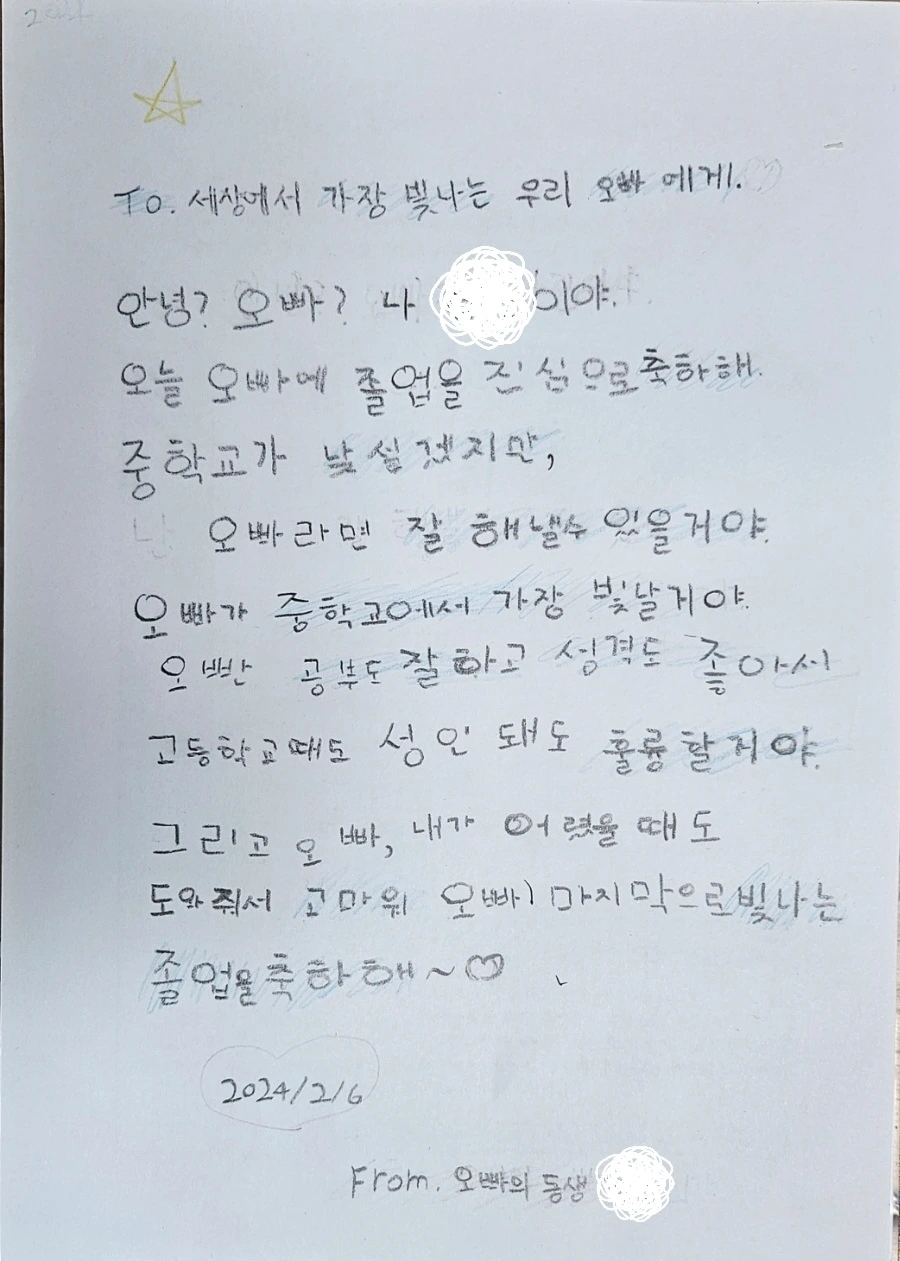 2024
To. 세상에서 가장 빛나는 우리 오빠 에게.♡
안녕? 오빠? 나 이야.
오늘 오빠에 졸업을 진심으로 축하해.
중학교가 낯설겠지만,
난 오빠라면 잘 해낼수 있을거야.
오빠가 중학교에서 가장 빛날거야.
오빤 공부도 잘하고 성격도 좋아서
고등학교때도 성인 돼도 훌륭할거야.
그리고 오빠, 내가 어렸을 때도
도와줘서 고마워 오빠! 마지막으로 빛나는
졸업을 축하해~♡
2024/2/6
From. 오빠의 동생